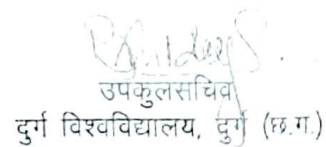 उपकुलसचिव
दुर्ग विश्वविद्यालय, दुर्ग (छ.ग.)